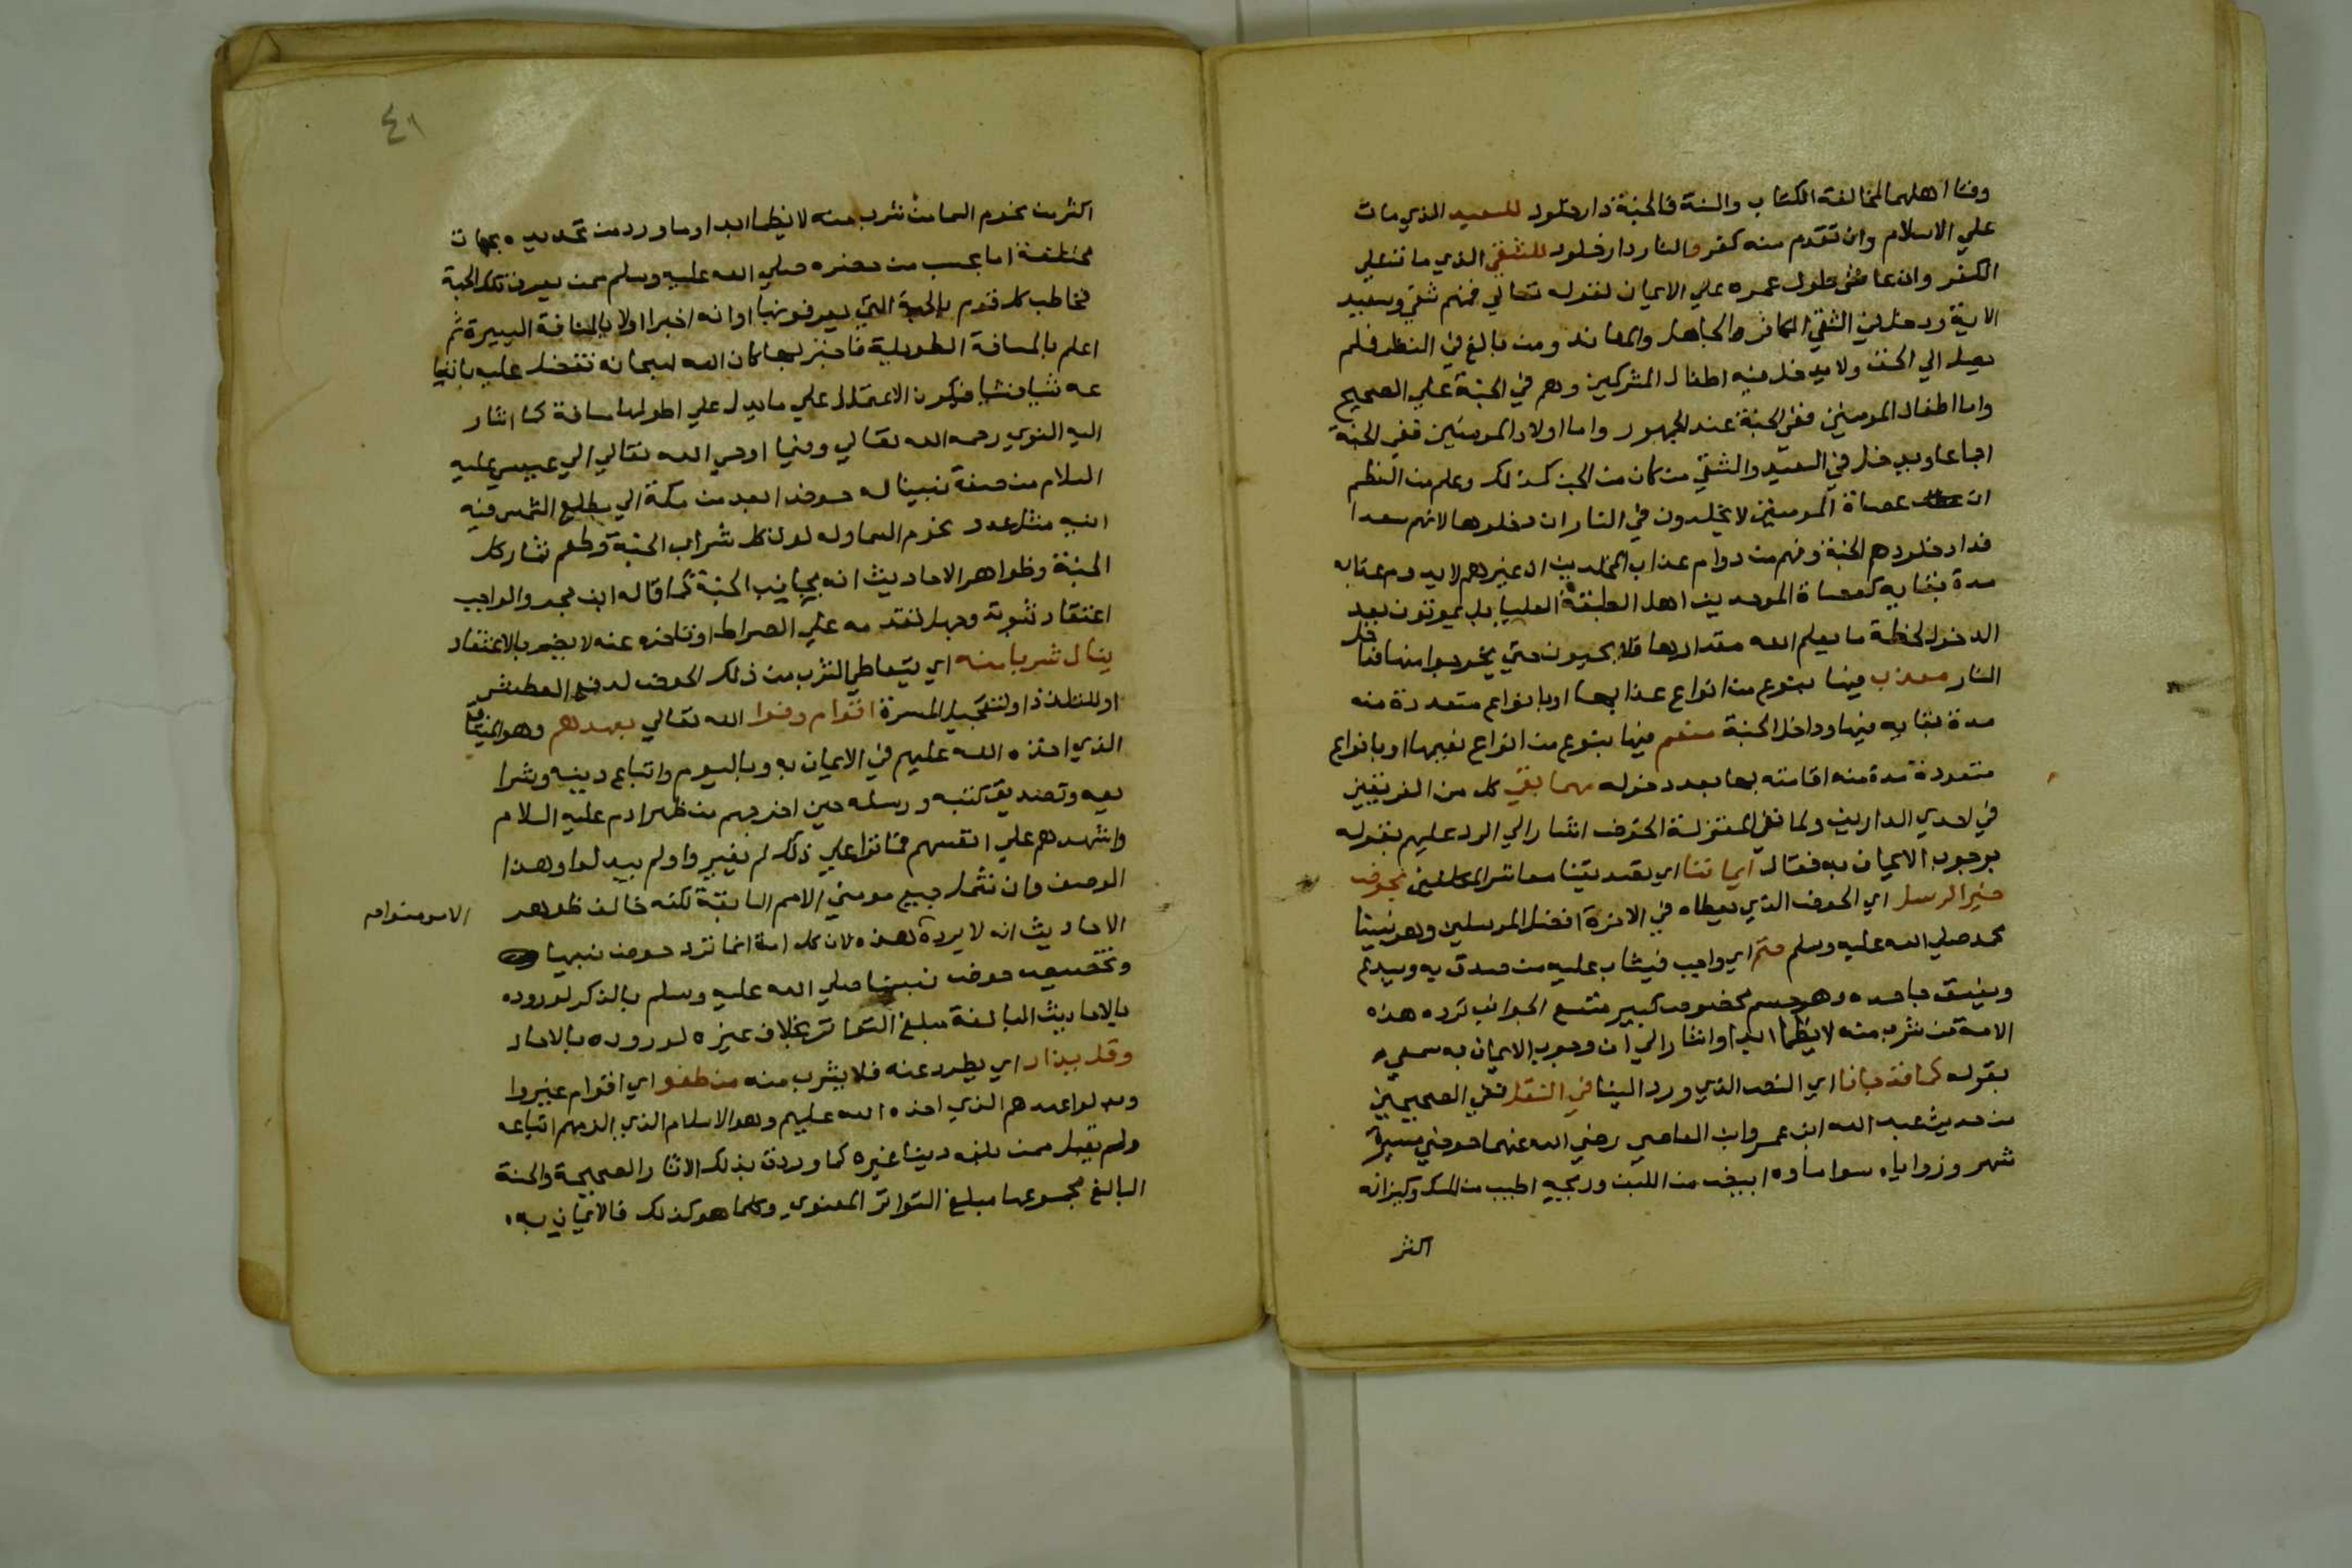 وفنا اهلهما لمخالفة الكتاب والسنة فالجنة دار خلود للسعيد الذي مات
علي الاسلام وان تقدم منه كفر والنار دار خلود للشقي الذي مات علي
الكفر وان عاش طول عمره علي الايمان لقوله تعالي فمنهم شقي وسعيد
الاية ودخل في الشقي الكافر والجاهل والمعاند ومن بالغ في النظر فلم
يصل الي الحق ولا يدخل فيه اطفال المشركين وهم في الجنة علي الصحيح
واما اطفال المومنين ففي الجنة عند الجمهور واما اولاد المومنين ففي الجنة
اجماعا ويدخل في السعيد والشقي من كان من الجن كذلك وعلم من النظم
ان عصاة المومنين لا يخلدون في النار ان دخلوها لانهم سعدا
فدار خلودهم الجنة وفهم من دوام عذاب المخلدين ان غيرهم لا يدوم عقابه
مدة بقايه كعصاة الموحدين اهل الطبقة العليا بل يموتون بعد
الدخول لحظة ما يعلم الله مقدارها فلا يحيون حتي يخرجوا منها فداخل
النار معذب فيها بنوع من انواع عذابها او بانواع متعددة منه
مدة بقايه فيها وداخل الجنة منعم فيها بنوع من انواع نعيمها او بانواع
متعددة مدة منه اقامته بها بعد دخوله مهما بقي كل من الفريقين
في احدي الدارين ولما نفي المعتزلة الحوض اشار الي الرد عليهم بقوله
بوجوب الايمان به فقال ايماننا اي تصديقنا معاشر المكلفين بحوض
خير الرسل اي الحوض الذي يعطاه في الاخرة افضل المرسلين وهو نبينا
محمد صلي الله عليه وسلم حتم اي واجب فيثاب عليه من صدق به ويبدع
ويفسق جاحده وهو جسم مخصوص كبير متسع الجوانب ترده هذه
الامة من شرب منه لا يظما ابدا واشار الي ان وجوب الايمان به سمعي
بقوله كما قد جانا اي النص الذي ورد الينا في النقل ففي الصحيحين
من حديث عبد الله ابن عمرو ابن العاصي رضي الله عنهما حوضي مسيرة
شهر وزواياه سوا ماوه ابيض من اللبن وريحه اطيب من المسك وكيزانه
اكثر
٤١
اكثر من نجوم السما من شرب منه لا يظما ابدا وما ورد من تحديده بجهات
مختلفة اما بحسب من حضره صلي الله عليه وسلم ممن يعرف تلك الجهة
فخاطب كل قوم بالجهة التي يعرفونها او انه اخبر اولا بالمسافة اليسيرة ثم
اعلم بالمسافة الطويلة فاخبر بها كان الله سبحانه تفضل عليه باتساعه
شيا فشيا فيكون الاعتماد علي ما يدل علي اطولها مسافة كما اشار
اليه النووي رحمه الله تعالي وفيما اوحي الله تعالي الي عيسي عليه
السلام من صفة نبينا له حوض ابعد من مكة الي مطلع الشمس فيه
انية مثل عدد نجوم السما وله لون كل شراب الجنة وطعم ثمار كل
الجنة وظواهر الاحاديث انه بجانب الجنة كما قاله ابن حجر والواجب
اعتقاد ثبوته وجهل تقدمه علي الصراط او تاخره عنه لا يضر بالاعتقاد
ينال شربا منه اي يتعاطي الشرب من ذلك الحوض لدفع العطش
او للتلذذ او لتعجيل المسرة اقوام وفوا الله تعالي بعهدهم وهو الميثاق
الذي اخذه الله عليهم في الايمان به وباليوم واتباع دينه وشرا
يعه وتصديق كتبه ورسله حين اخرجهم من ظهر ادم عليه السلام
واشهدهم علي انفسهم فماتوا علي ذلك لم يغيروا ولم يبدلوا وهذا
الوصف وان شمل جميع مومني الامم السابقة لكنه خالف ظواهر
الاحاديث انه لا يرده الا مومنوا هذه لان كل امة انما ترد حوض نبيها
وتخصيص حوض نبينا صلي الله عليه وسلم بالذكر لوروده
بالاحاديث البالغة مبلغ التواتر بخلاف غيره لوروده بالاحاد
وقل يذاد اي يطرد عنه فلا يشرب منه من طغوا اي اقوام غيروا
وبدلوا عهدهم الذي اخذه الله عليهم وهو الاسلام الذي الزمهم اتباعه
ولم يقبل ممن بلغه دينا غيره كما وردت بذلك الاثار الصحيحة والحسنة
البالغ مجموعها مبلغ التواتر المعنوي وكلما هو كذلك فالايمان به